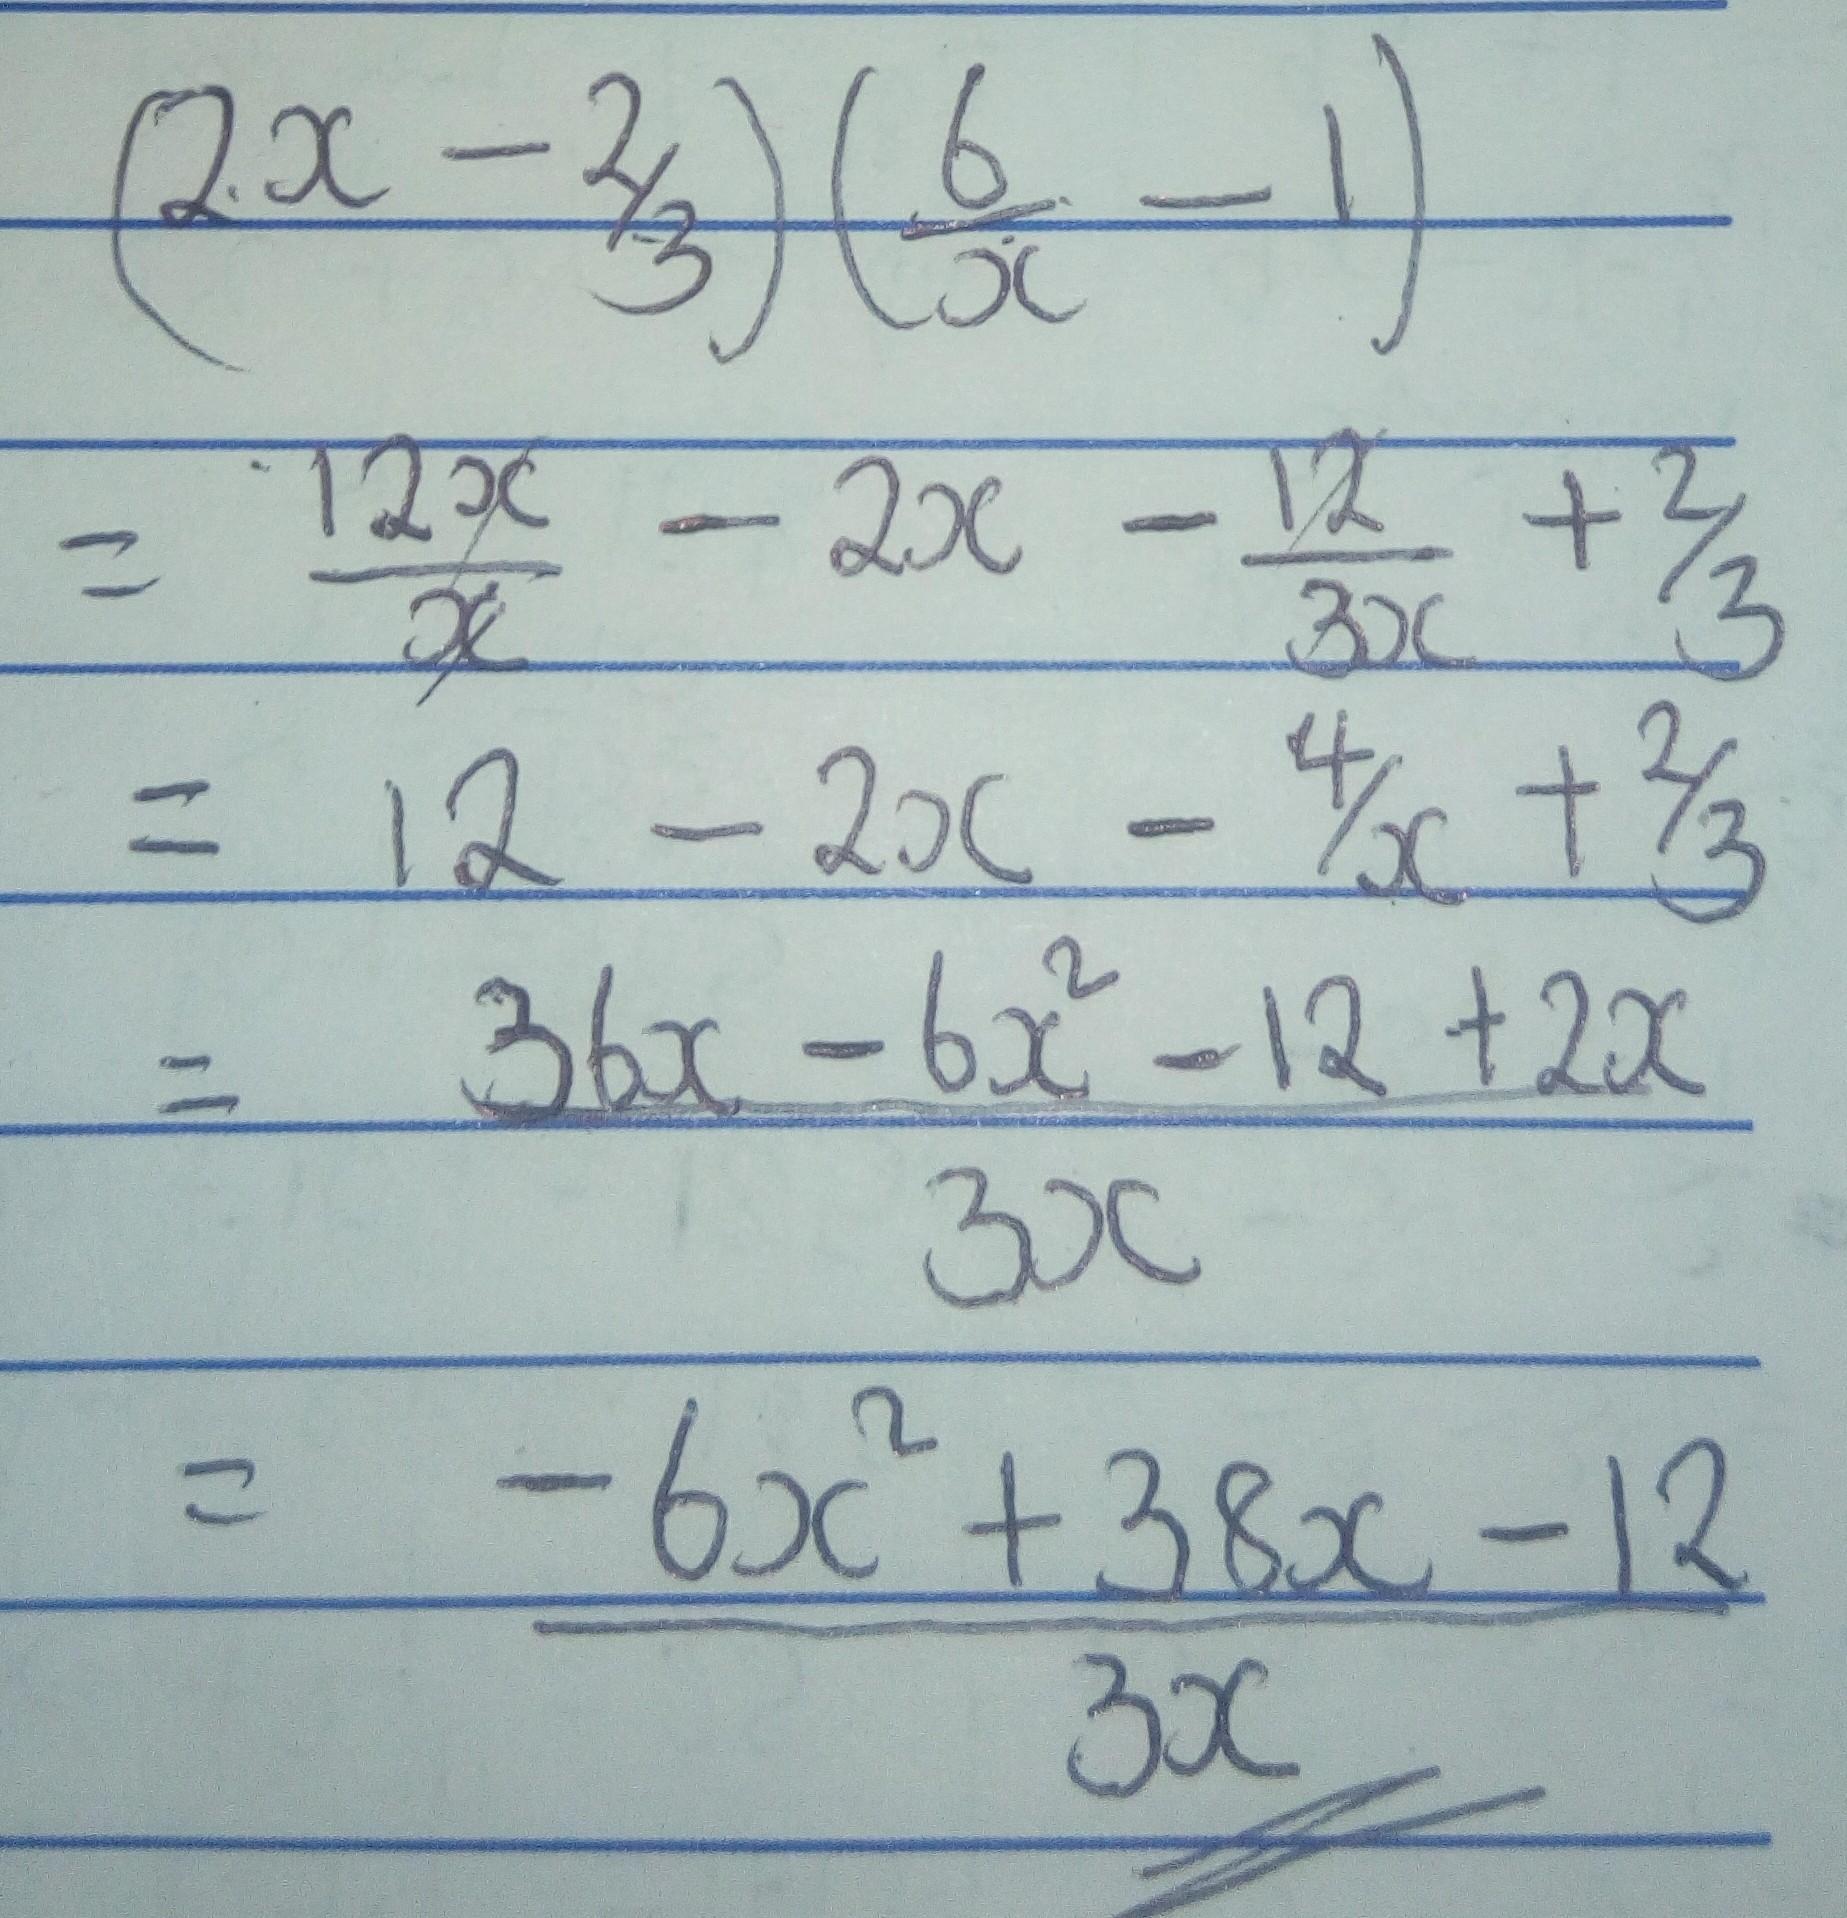 (2x - 2/3)(6/x - 1)
= 12x/x - 2x - 12/3x + 2/3
= 12 - 2x - 4/x + 2/3
= 36x - 6x² - 12 + 2x
3x
= -6x² + 38x - 12
3x